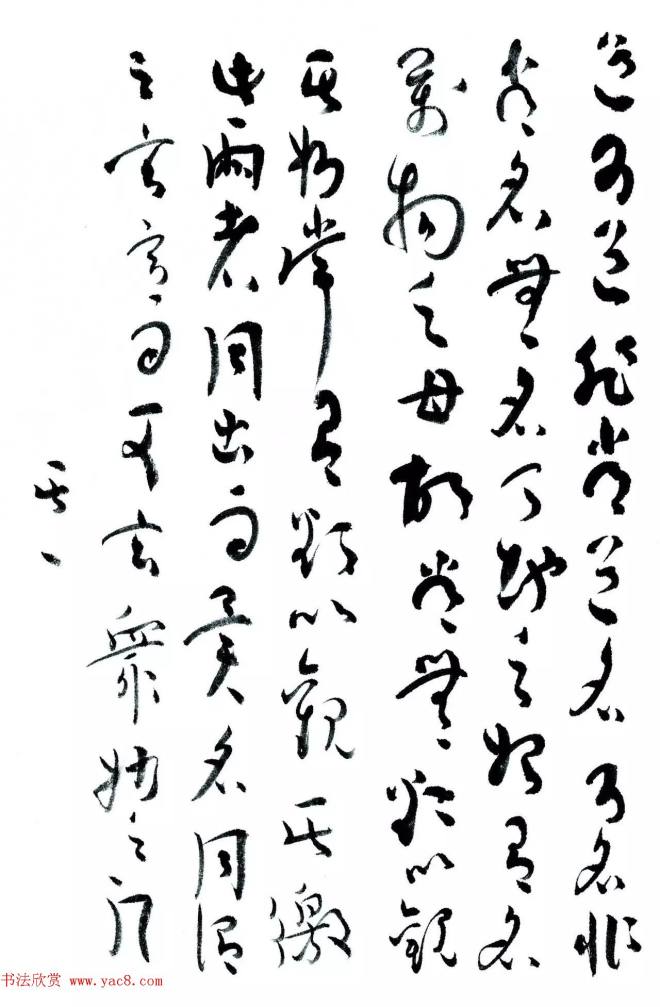 道可道非常道名可名非
常名無名天地之始有名
萬物之母故常無欲以觀
其妙常有欲以觀其徼
此兩者同出而異名同謂
之玄玄而又玄衆妙之門
其一
书法欣赏 www.yac8.com